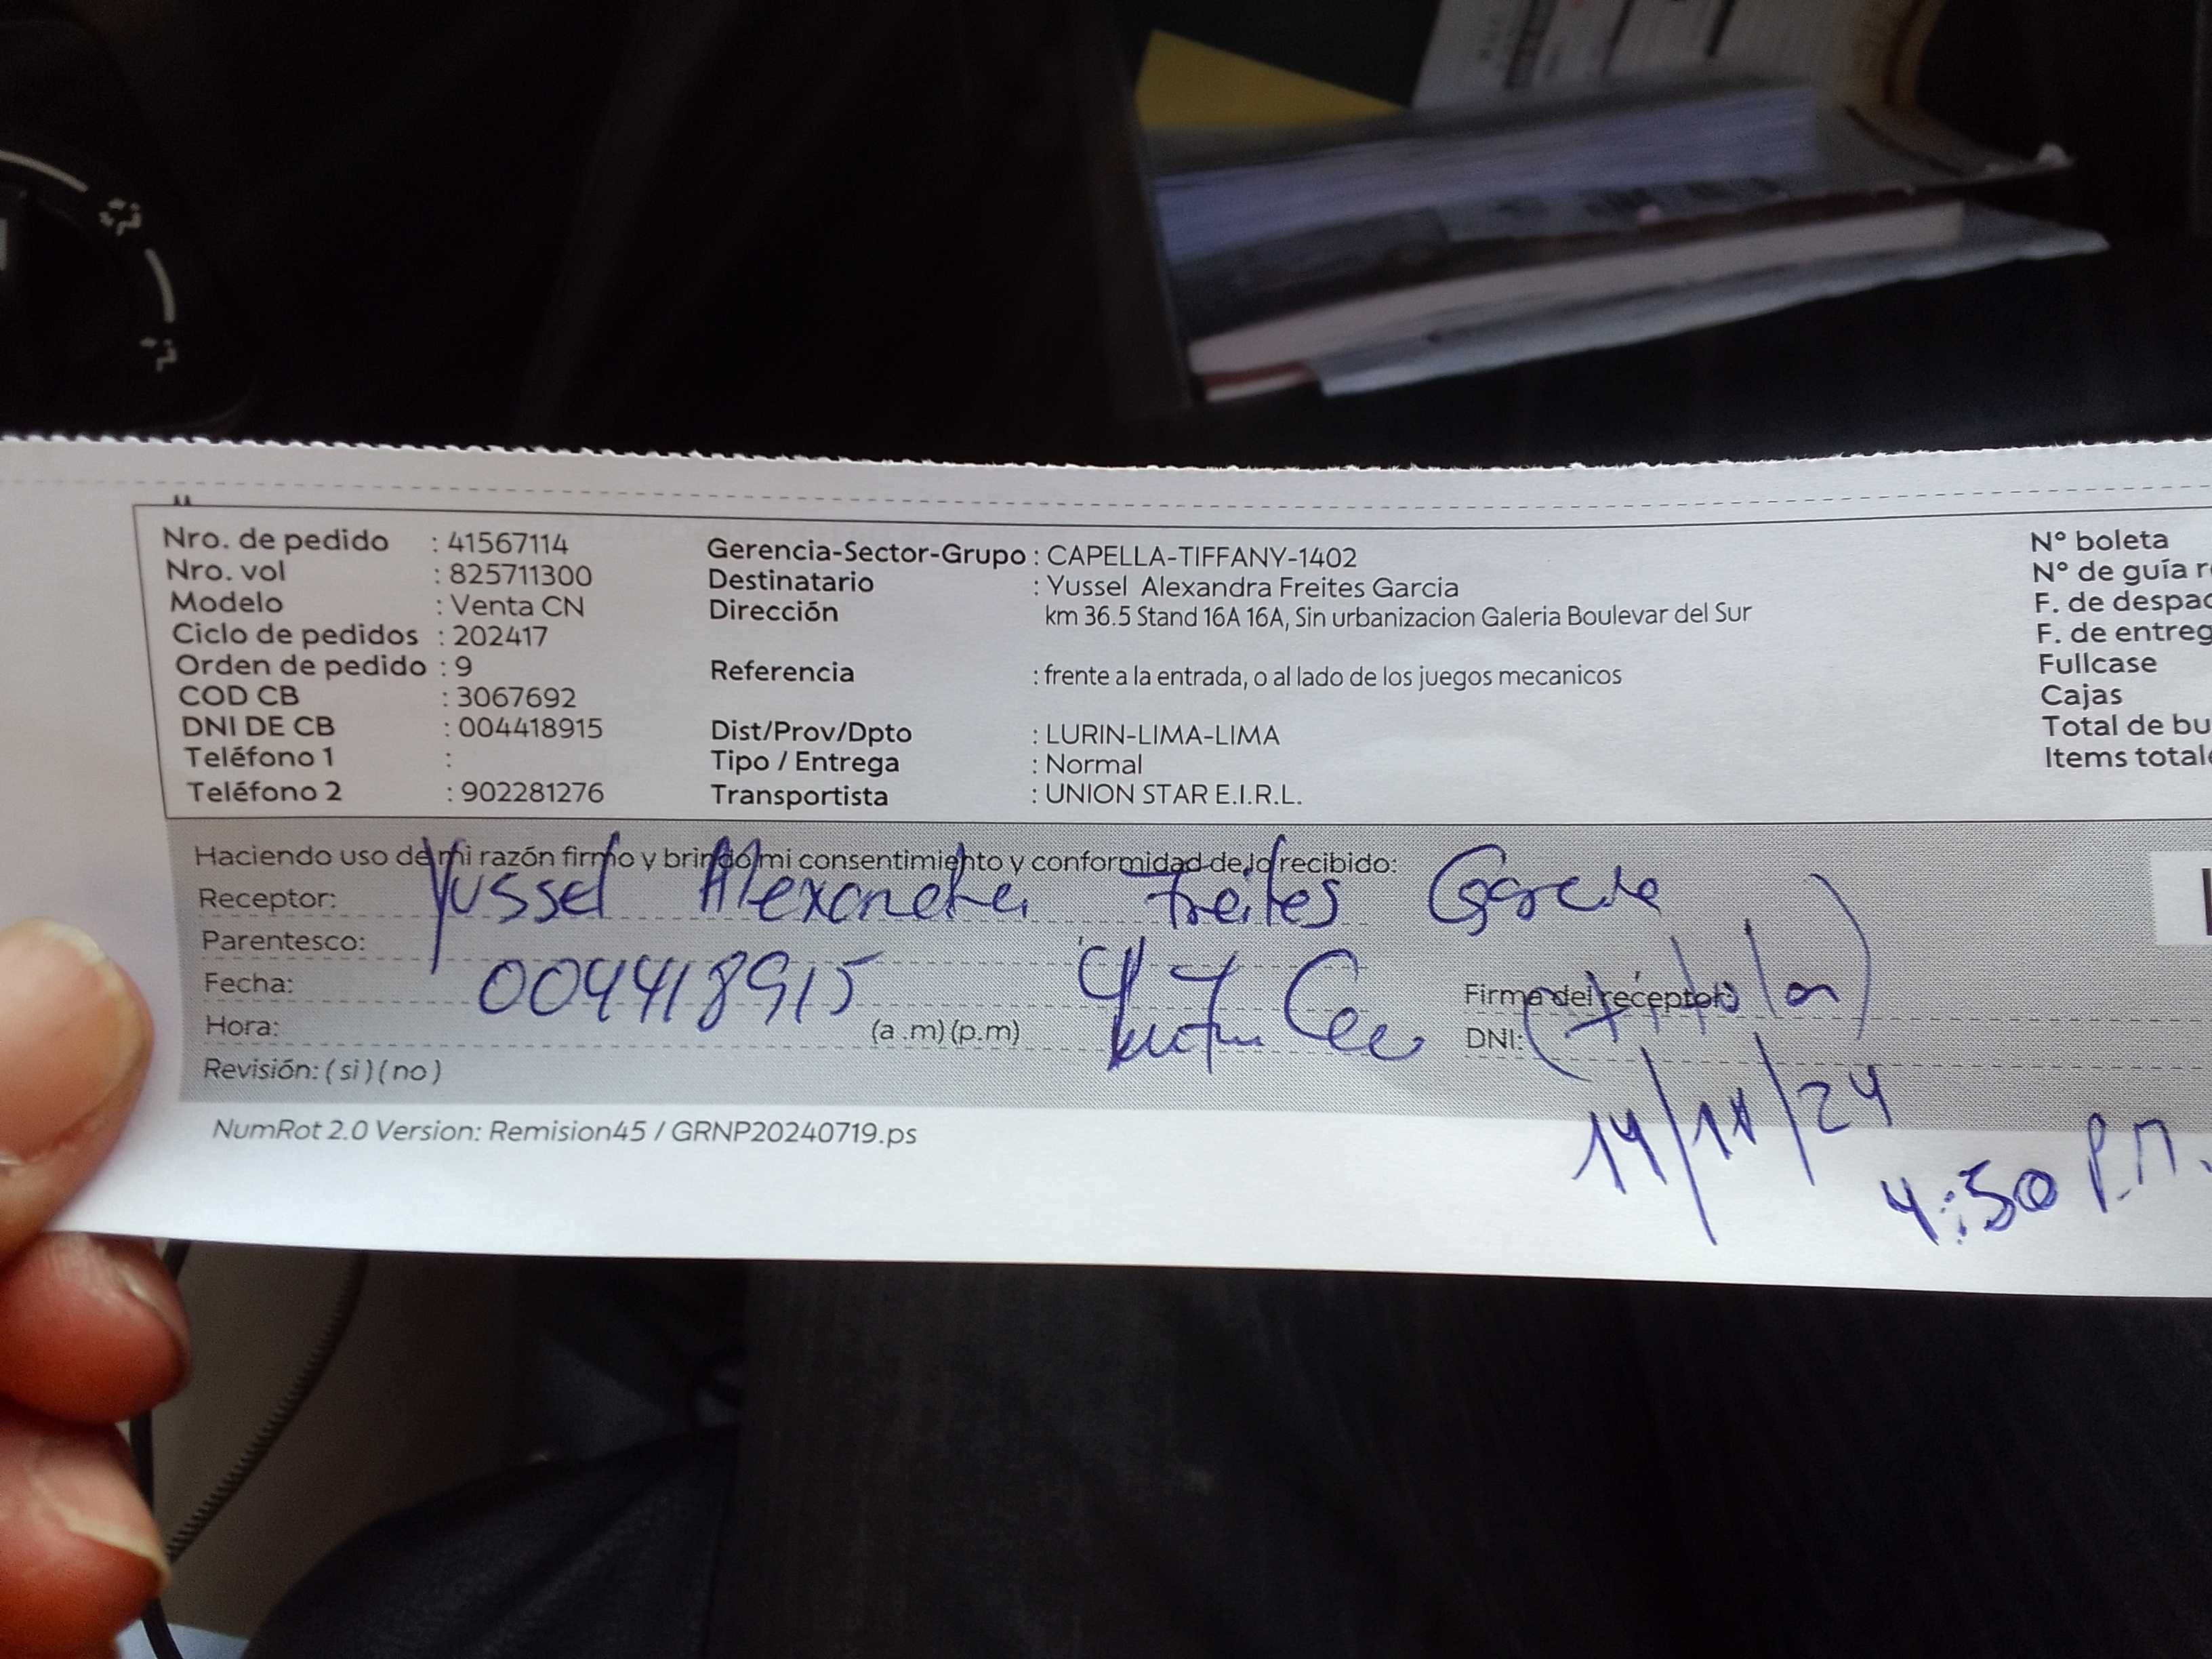 Nro. de pedido : 41567114
Nro. vol : 825711300
Modelo : Venta CN
Ciclo de pedidos : 202417
Orden de pedido : 9
COD CB : 3067692
DNI DE CB : 004418915
Teléfono 1 :
Teléfono 2 : 902281276
Gerencia-Sector-Grupo : CAPELLA-TIFFANY-1402
Destinatario : Yussel Alexandra Freites Garcia
Dirección km 36.5 Stand 16A 16A, Sin urbanizacion Galeria Boulevar del Sur
Referencia : frente a la entrada, o al lado de los juegos mecanicos
Dist/Prov/Dpto : LURIN-LIMA-LIMA
Tipo / Entrega : Normal
Transportista : UNION STAR E.I.R.L.
N° boleta
N° de guía r
F. de despac
F. de entreg
Fullcase
Cajas
Total de bu
Items total
Haciendo uso de mi razón firmo y brindo mi consentimiento y conformidad de lo recibido:
Receptor: Yussel Alexandra Freites Garcia
Parentesco:
Fecha: 004418915
Hora: (a.m) (p.m)
Revisión: ( si ) ( no )
Firma del receptor:
DNI:
14/11/24
4:50 P.M.
NumRot 2.0 Version: Remision45 / GRNP20240719.ps